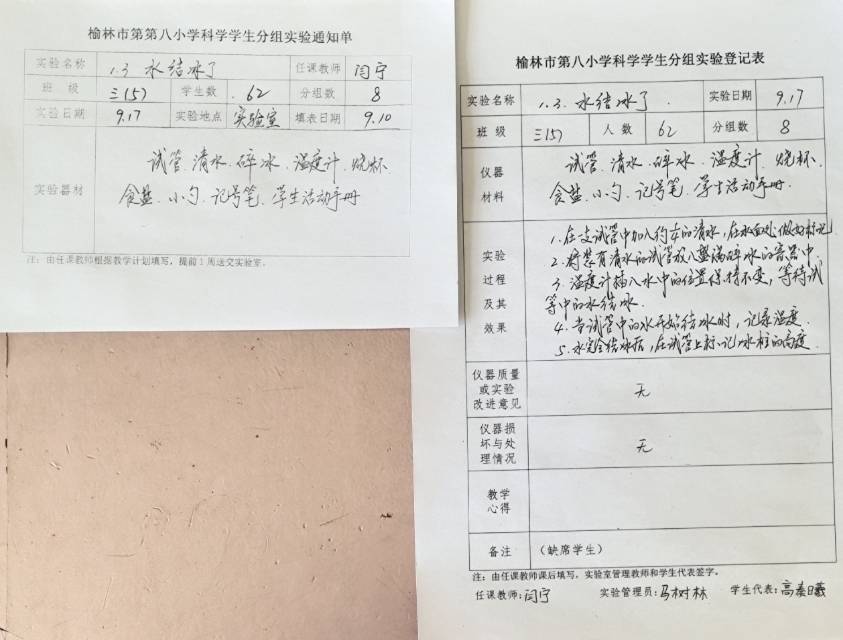 榆林市第第八小学科学学生分组实验通知单
实验名称 1.3 水结冰了 任课教师 闫宁
班 级 三(5) 学生数 62 分组数 8
实验日期 9.17 实验地点 实验室 填表日期 9.10
实验器材 试管、清水、碎冰、温度计、烧杯
食盐、小勺、记号笔、学生活动手册
注：由任课教师根据教学计划填写，提前1周送交实验室.
榆林市第八小学科学学生分组实验登记表
实验名称 1.3. 水结冰了 实验日期 9.17
班 级 三(5) 人 数 62 分组数 8
仪器
材料
试管、清水、碎冰、温度计、烧杯
食盐、小勺、记号笔、学生活动手册.
实验
过程
及其
效果
1.在支试管中加入约车的清水,在水面处做好标记
2.将装有清水的试管放入盛满碎水的容器中
3.温度计插入水中的位置保持不变,等待试
等中的水结冰.
4.当试管中的水开始结冰时,记录温度.
5.水完全结冰后,在试管上标记冰柱的高度.
仪器质量
或实验
改进意见
无
仪器损
坏与处
理情况
无
教学
心得
备注 （缺席学生）
注：由任课教师课后填写，实验室管理教师和学生代表签字。
任课教师:闫宁 实验管理员:马树林 学生代表:高奏曦